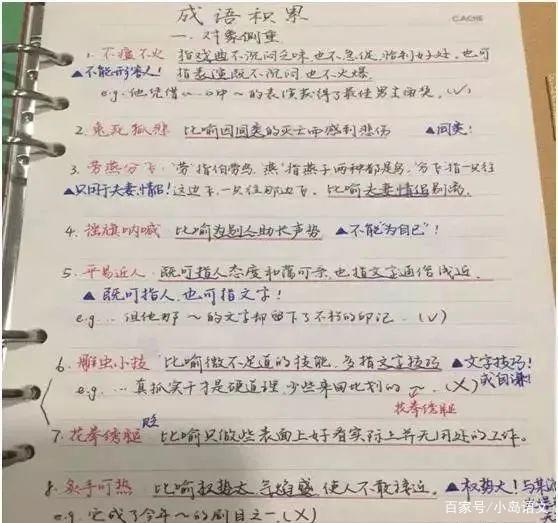 成语积累
CACHE
一、对象侧重
1. 不瘟不火 指戏曲不沉闷乏味也不急促,恰到好处,也可
▲不能形容人! 指表演既不沉闷也不火爆。
e.g. 他凭借《…》中~的表演获得了最佳男主角奖。(√)
2. 兔死狐悲 比喻因同类的灭亡而感到悲伤 ▲同类!
3. 劳燕分飞:劳指伯劳鸟,燕指燕子两种都是鸟,分飞指一只往
▲只用于夫妻、情侣! 这边飞,一只往那边飞,比喻夫妻情侣别离。
4. 摇旗呐喊 比喻为别人助长声势 ▲不能"为自己"!
5. 平易近人:既可指人态度和蔼可亲,也指文字通俗浅近。
▲既可指人,也可指文字!
e.g. … 但他那~的文字却留下了不朽的印记。(√)
6. 雕虫小技 比喻微不足道的技能,多指文字技巧 ▲文字技巧!
或自谦!
e.g. … 真抓实干才是硬道理,少些来回比划的~。(X)
花拳绣腿
7. 花拳绣腿 比喻只做些表面上好看实际上并无用处的工作。
贬
8. 炙手可热:比喻权势大,气焰盛,使人不敢接近。▲权势大!与某
e.g. 它成了今年~的剧目之一。(X)
百家号/小岛语文